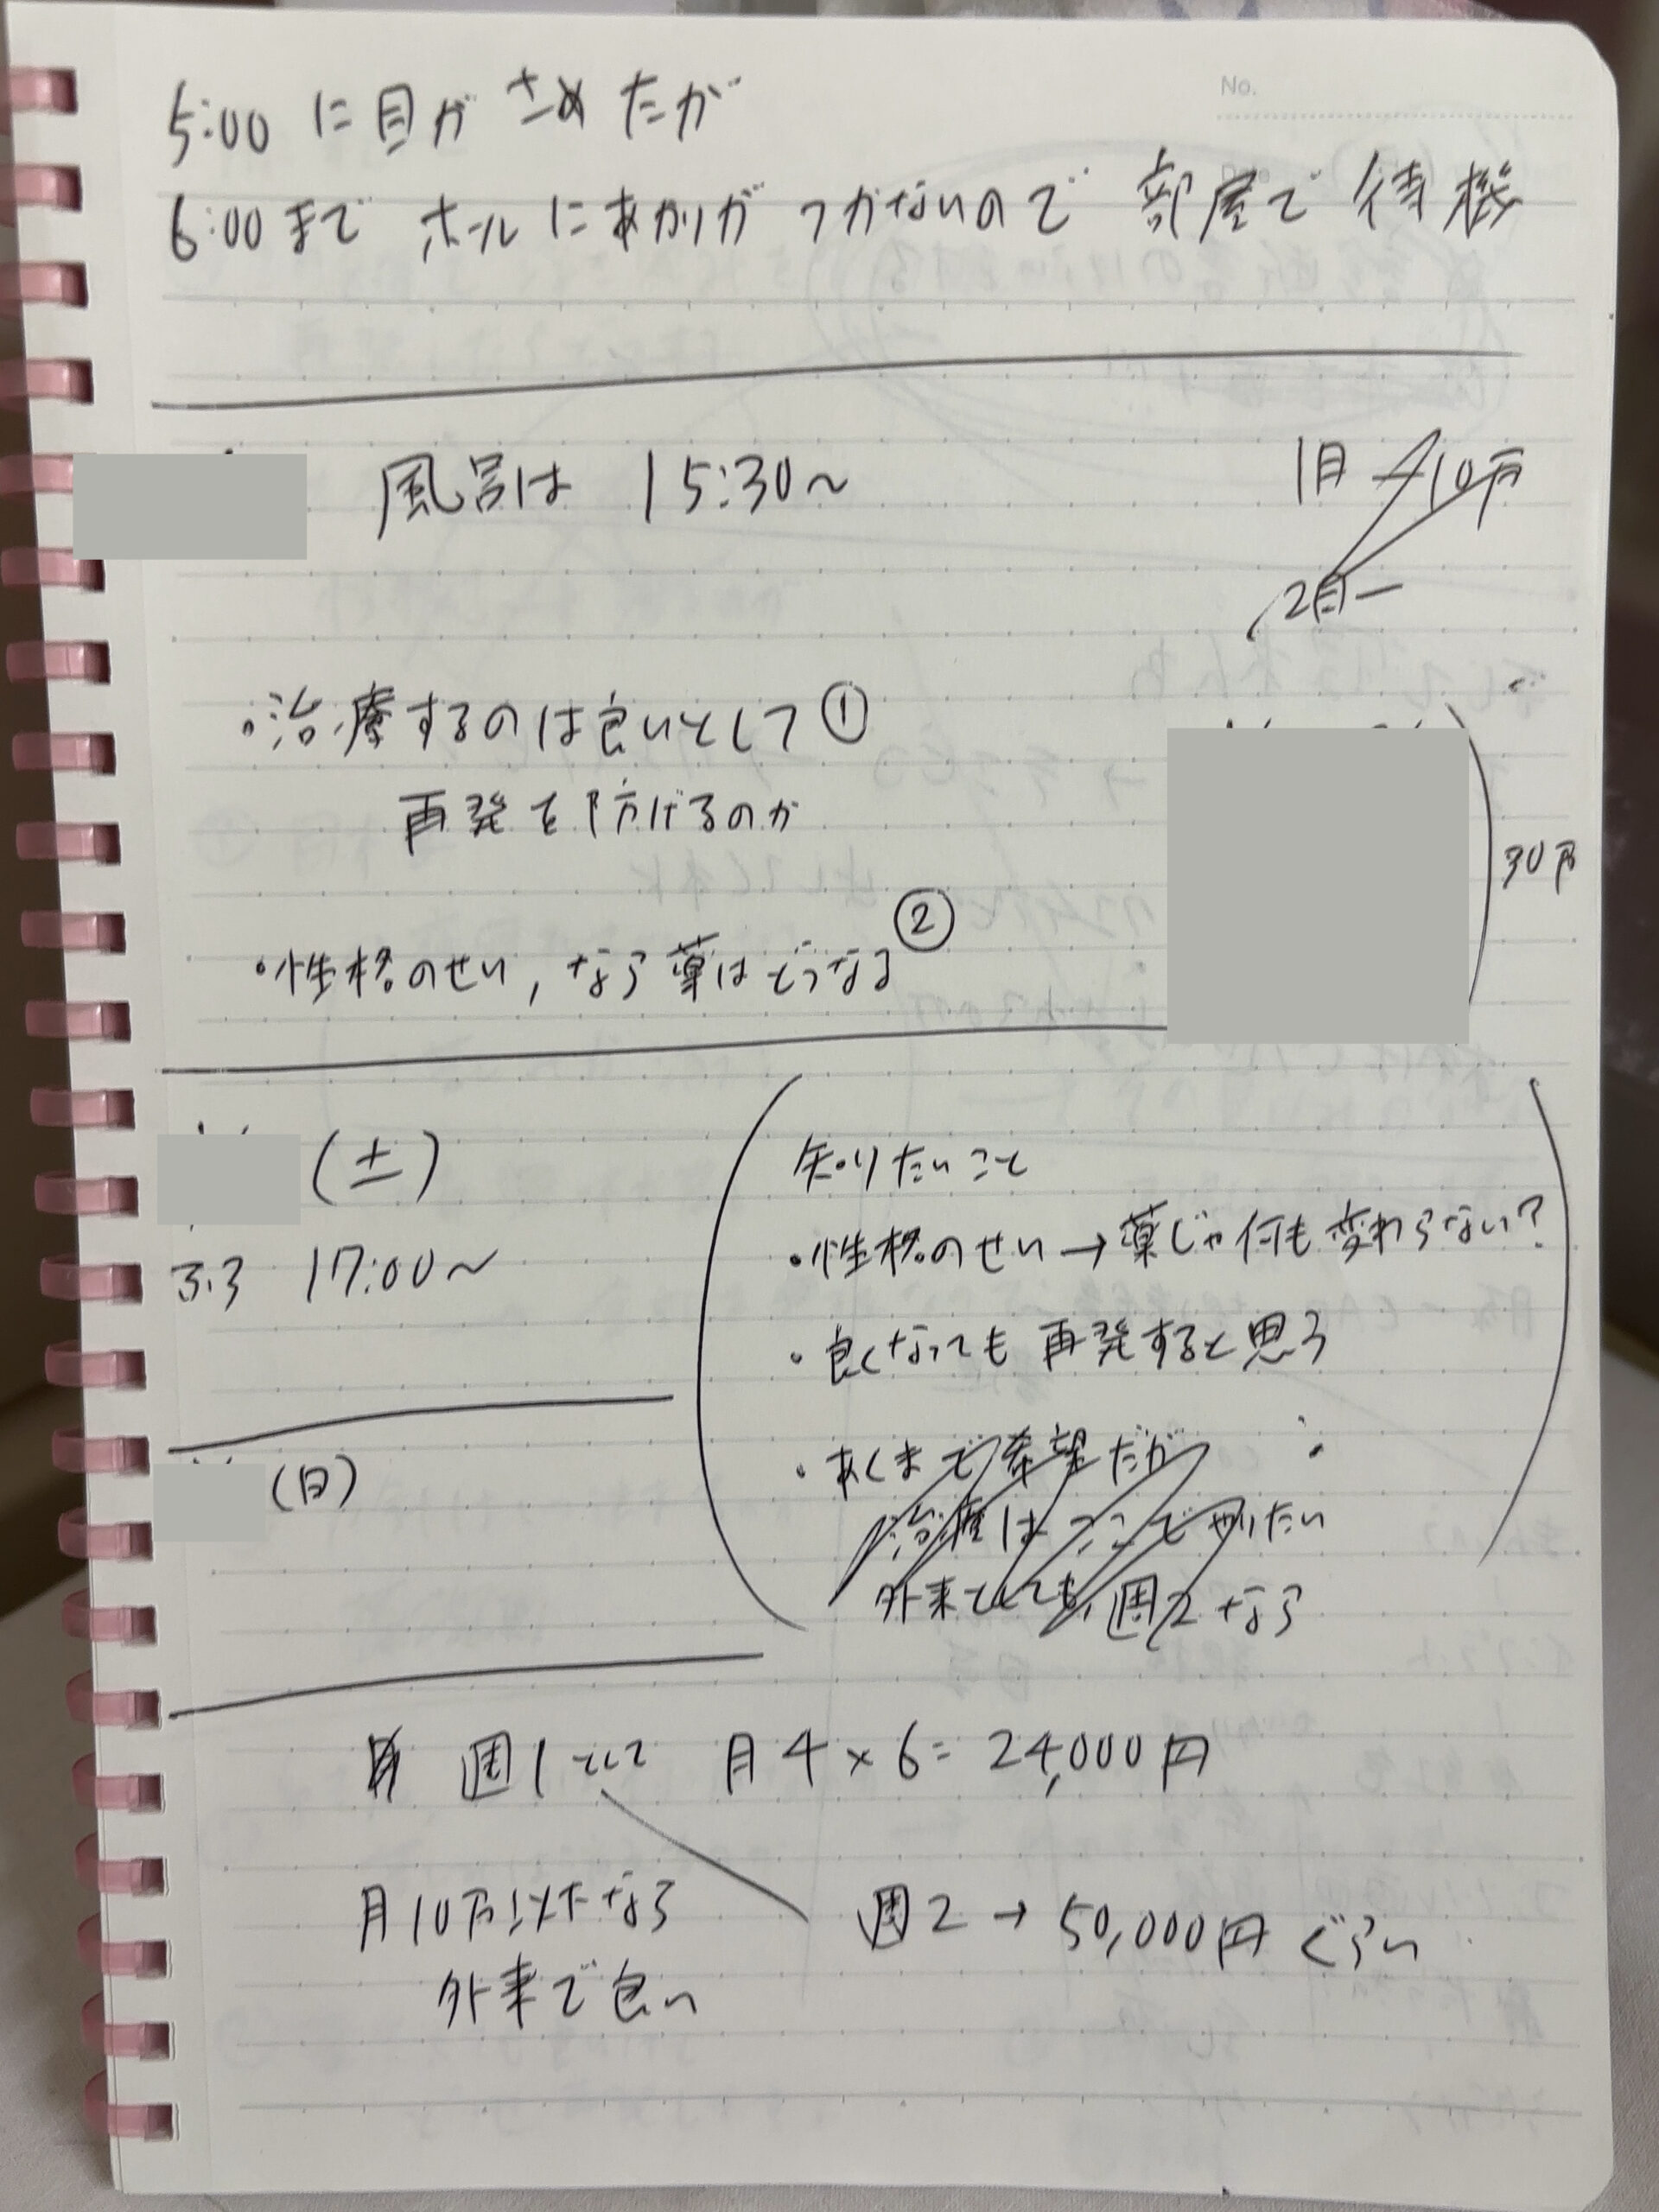 No.
5:00 に目がさめたが
6:00まで ホールにあかりがつかないので 部屋で待機
風呂は 15:30～
1月 10万
2月ー
・治療するのは良いとして ①
再発を防げるのか
30万
・性格のせい, なら薬はどうなる ②
(土)
3.3 17:00～
知りたいこと
・性格のせい→薬じゃ何も変わらない?
・良くなっても再発すると思う
・あくまで希望だが
治療はここでやりたい
外来としても, 週2なら
(日)
週1として 月4×6=24,000円
月10万以下なら
外来で良い
週2→50,000円ぐらい